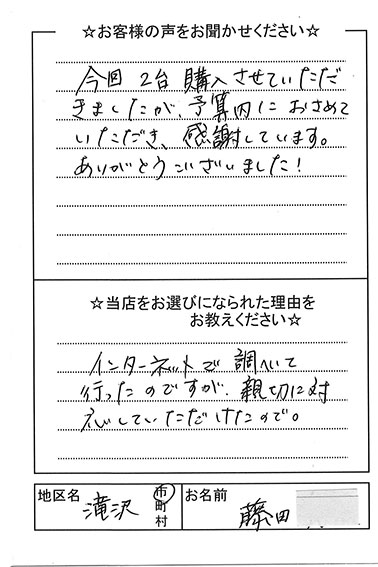 ☆お客様の声をお聞かせください☆
今回2台購入させていただ
きましたが、予算内におさめて
いただき、感謝しています。
ありがとうございました!
☆当店をお選びになられた理由を
お教えください☆
インターネットで調べて
行ったのですが、親切に対
応していただけたので。
地区名 滝沢 市町村 お名前 藤田